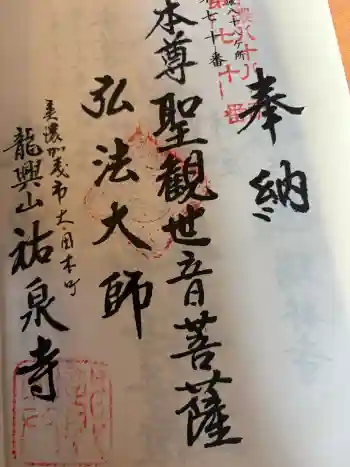 奉納
第七十番
本尊聖観世音菩薩
弘法大師
美濃加茂市太田本町
龍興山祐泉寺